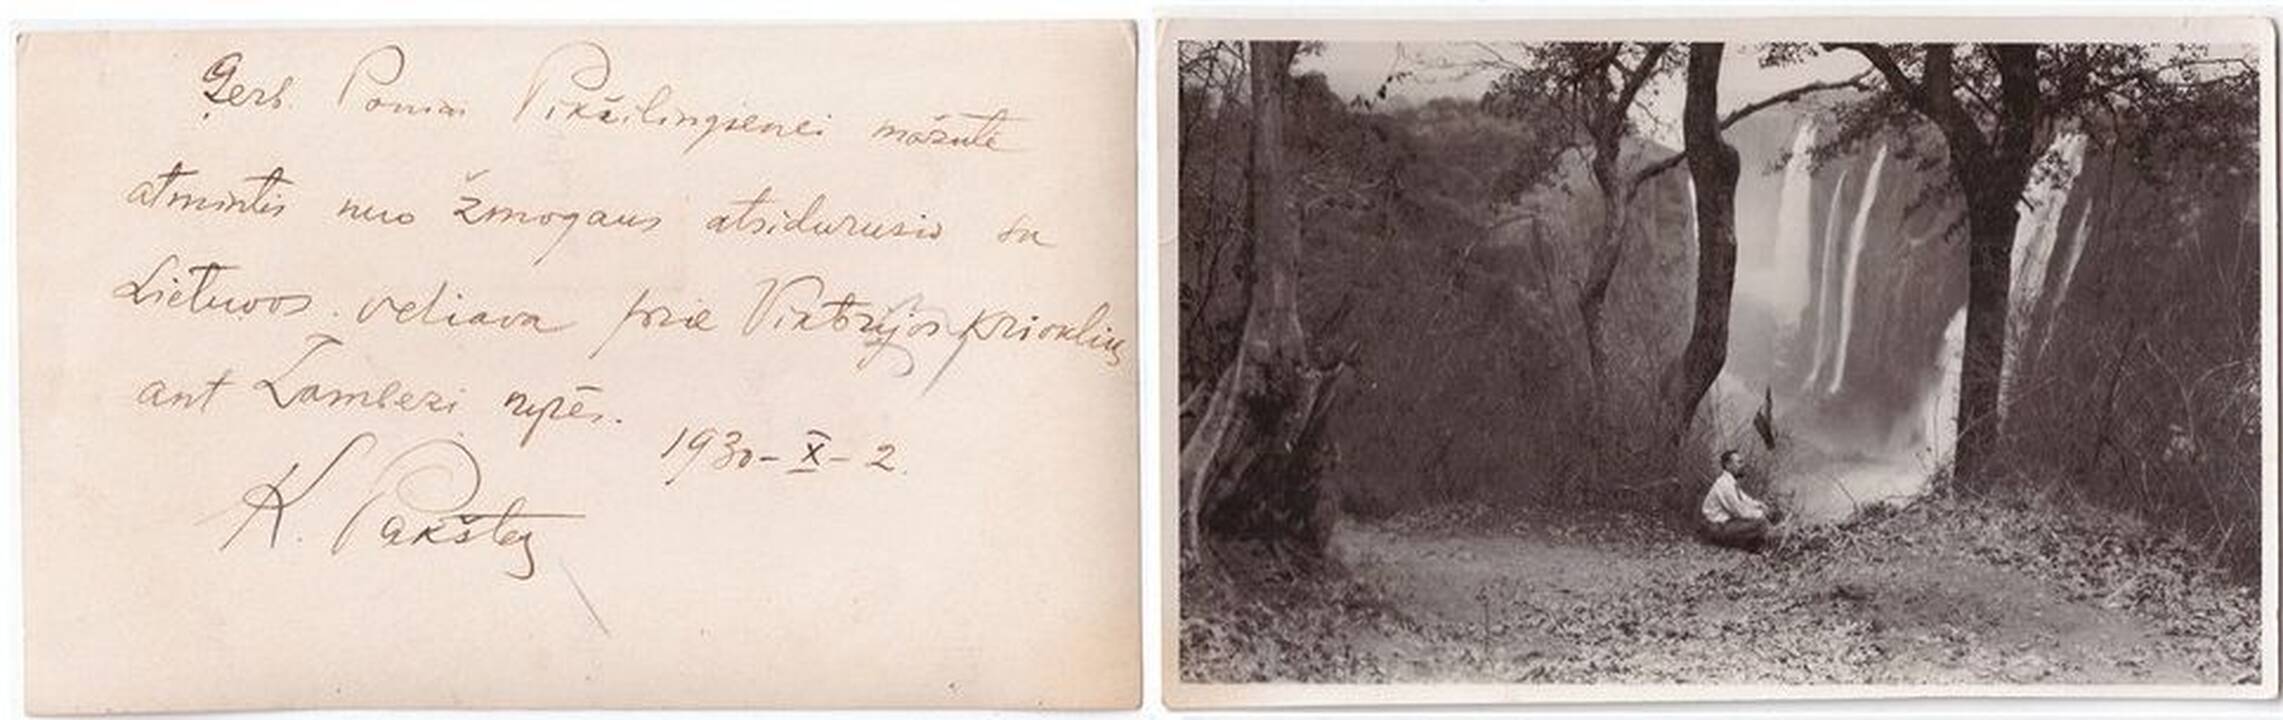 Gerb. Poniai Pikčilingienei mažutė
atmintis nuo žmogaus atsidurusio su
Lietuvos vėliava prie Viktorijos krioklių
ant Zambezi upės.
1930-X-2.
K. Pakštas